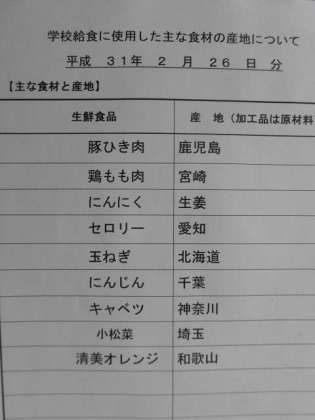 学校給食に使用した主な食材の産地について
平成 31年 2 月 26 日 分
【主な食材と産地】
生鮮食品 産 地（加工品は原材料
豚ひき肉 鹿児島
鶏もも肉 宮崎
にんにく 生姜
セロリー 愛知
玉ねぎ 北海道
にんじん 千葉
キャベツ 神奈川
小松菜 埼玉
清美オレンジ 和歌山